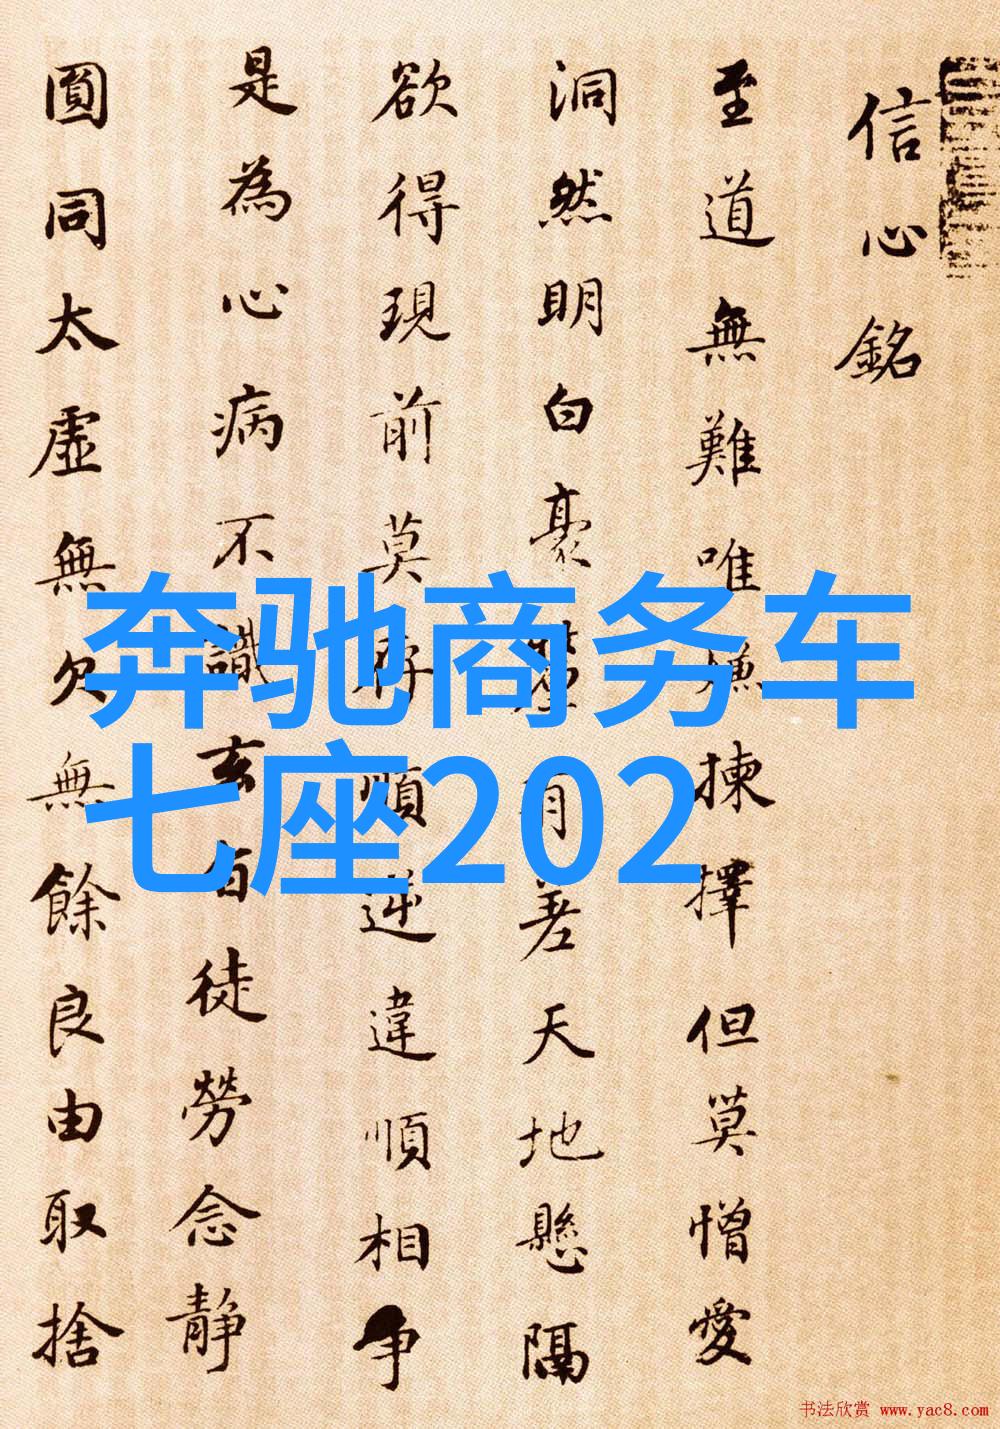 信心銘
至道無難唯嫌揀擇但莫憎愛
洞然明白豪釐有差天地懸隔
欲得現前莫存順逆違順相争
是為心病不識玄旨徒勞念静
圓同太虛無欠無餘良由取捨
奔驰商务车
七座202
书法欣赏 www.yac8.com